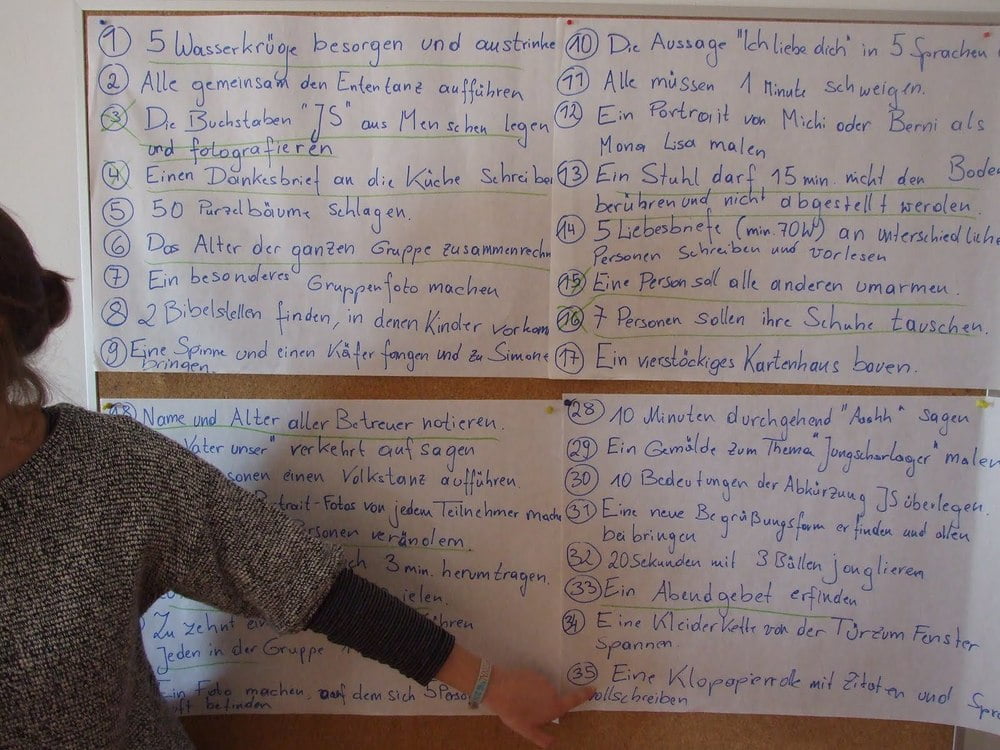 1 5 Wasserkrüge besorgen und austrinke
2 Alle gemeinsam den Ententanz aufführen
3 Die Buchstaben "JS" aus Menschen legen
und fotografieren
4 Einen Dankesbrief an die Küche Schreibe
5 50 Purzelbäume schlagen.
6 Das Alter der ganzen Gruppe zusammenrechn
7 Ein besonderes Gruppenfoto machen
8 2 Bibelstellen finden, in denen Kinder vorkom
9 Eine Spinne und einen Käfer fangen und zu Simone
bringen.
10 Die Aussage "Ich liebe dich" in 5 Sprachen
11 Alle müssen 1 Minute schweigen.
12 Ein Portrait von Michi oder Berni als
Mona Lisa malen
13 Ein Stuhl darf 15 min. nicht den Bode
berühren und nicht abgestellt werden.
14 5 Liebesbriefe (min. 70W) an unterschiedliche
Personen schreiben und vorlesen
15 Eine Person soll alle anderen umarmen.
16 7 Personen sollen ihre Schuhe tauschen.
17 Ein vierstöckiges Kartenhaus bauen.
18 Name und Alter aller Betreuer notieren.
Vater unser" verkehrt aufsagen
sonen einen Volkstanz aufführen.
trait-Fotos von jedem Teilnehmer mache
ersonen verändern.
ch 3 min. herumtragen.
ielen.
Zu zehnt ein hren
Jeden in der Gruppe
Ein Foto machen, auf dem sich 5 Perso
ft befinden
28 10 Minuten durchgehend "Aahh" sagen
29 Ein Gemälde zum Thema "Jungscharlager" malen
30 10 Bedeutungen der Abkürzung JS überlegen.
31 Eine neue Begrüßungsform erfinden und allen
beibringen
32 20 Sekunden mit 3 Bällen jonglieren
33 Ein Abendgebet erfinden
34 Eine Kleiderkette von der Tür zum Fenster
Spannen.
35 Eine Klopapierrolle mit Zitaten und Spr
vollschreiben